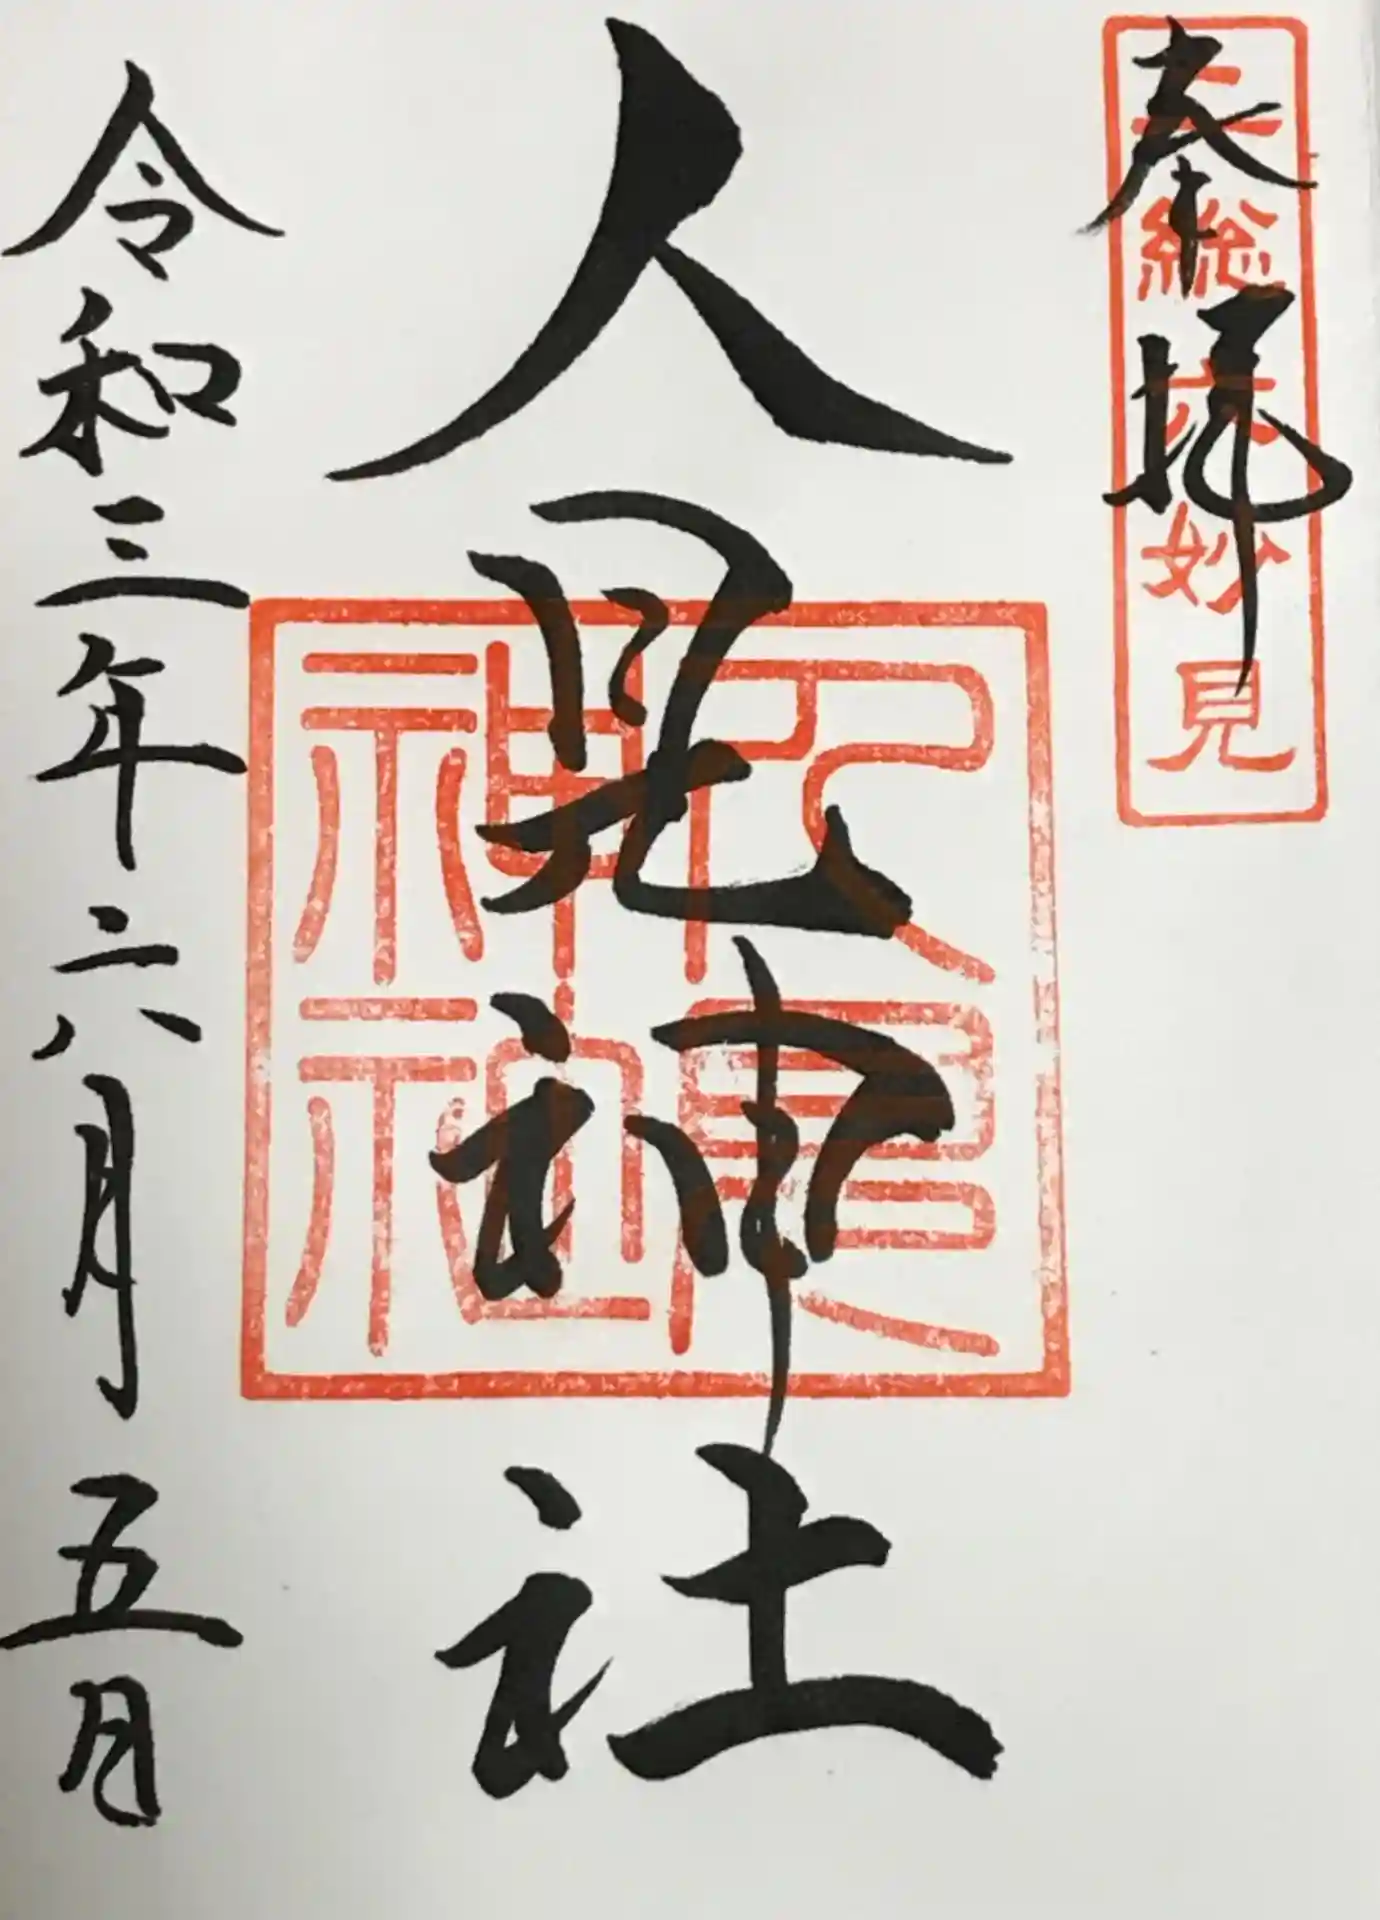 奉拝
二総六妙見
人見神社
人見
神社
令和三年六月五日